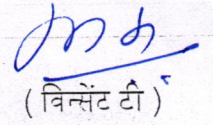 ( विन्सेंट टी )